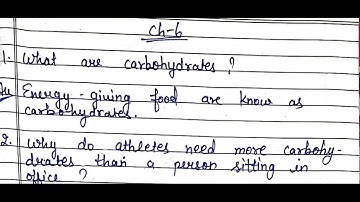 Ch-6
1. What are carbohydrates ?
Energy - giving food are know as
carbohydrates.
2. Why do athletes need more carbohy-
drates than a person sitting in
office ?